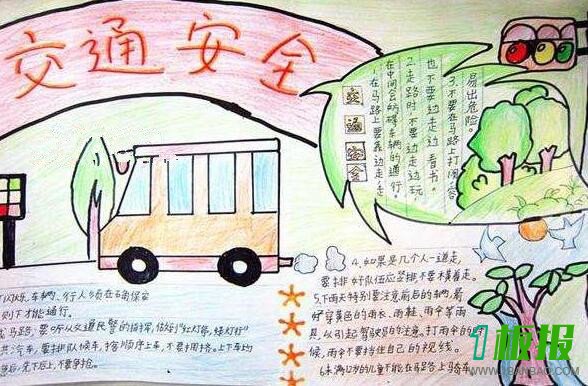 交通安全
交通安全
1.在马路上要靠边走,走
在中间会妨碍车辆的通行。
2.走路时,不要边走边玩,
也不要边走边看书。
3.不要在马路上打闹,容
易出危险。
闪烁,车辆、行人须在确保安
则下才能通行。
马路,要听从交通民警的指挥,做到"红灯停,绿灯行"
共汽车,要排队候车,按顺序上车,不要拥挤。上下车均
后,先下后上,不要争抢。
4.如果是几个人一道走,
要排好队伍应竖排,不要横着走。
5.下雨天特别要注意前后的车辆,最
好穿黄色的雨衣、雨鞋,雨伞等雨
具,以引起驾驶员的注意。打雨伞的时
候,雨伞不要挡住自己的视线。
6.未满12岁的儿童不能在马路上骑车
1板报
1BANBAO.COM